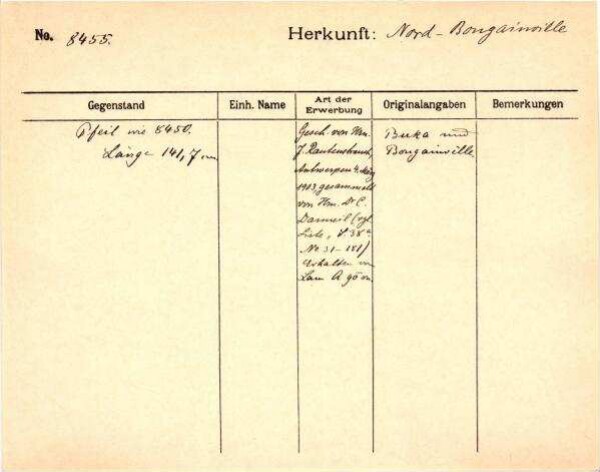 No. 8455.
Herkunft: Nord-Bougainville
Gegenstand
Einh. Name
Art der Erwerbung
Originalangaben
Bemerkungen
Pfeil wie 8450.
Länge 141,7 cm
Gesch. von Hrn.
J. Rautenstrauch,
Antwerpen
1913, gesammelt
von Hrn. Dr. C.
(vgl.
Liste,
No 31-181)
Erhalten
Buka und
Bougainville